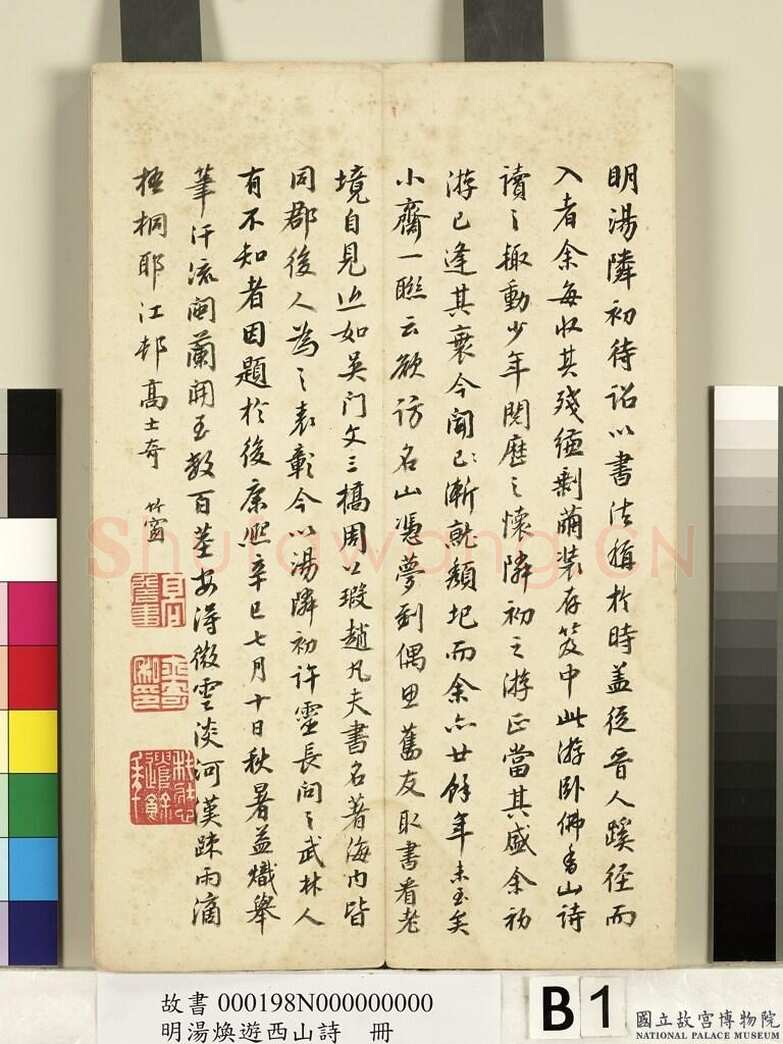 明湯隣初待詔以書法稱於時蓋從晉人蹊徑而
入者余每收其殘縑剩繭装存笈中此游卧佛香山詩
讀之輙動少年閱歷之懷隣初之游正當其盛余初
游已逢其衰今聞已漸就頹圯而余亦廿餘年未至矣
小齋一聯云欲訪名山憑夢到偶思舊友取書看老
境自見止如吳门文三橋周公瑕趙凡夫書名著海内皆
同郡後人為之表彰今以湯隣初許靈長问之武林人
有不知者因題於後康熙辛巳七月十日秋暑益熾舉
筆汗流闽蘭開至数百莖安得微雲淡河漢疎雨滴
梧桐耶江邨高士奇 竹窗
Shufawang.CN
故書 000198N000000000
明湯煥遊西山詩 冊
B1
國立故宮博物院
NATIONAL PALACE MUSEUM